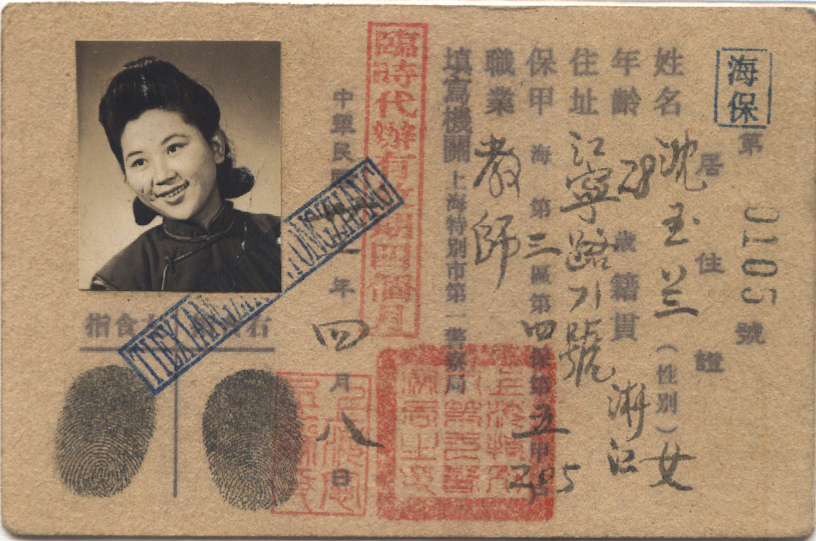 海保
第 0105 號
居住證
姓名 沈玉兰 (性別) 女
年齡 28 歲 籍貫 浙江
住址 江寧路71號
保甲 海 第三區第四保第五甲
職業 教師
填寫機關 上海特別市第一警察局
臨時代辦有效期四個月
中華民國 一年四月八日
右 食指